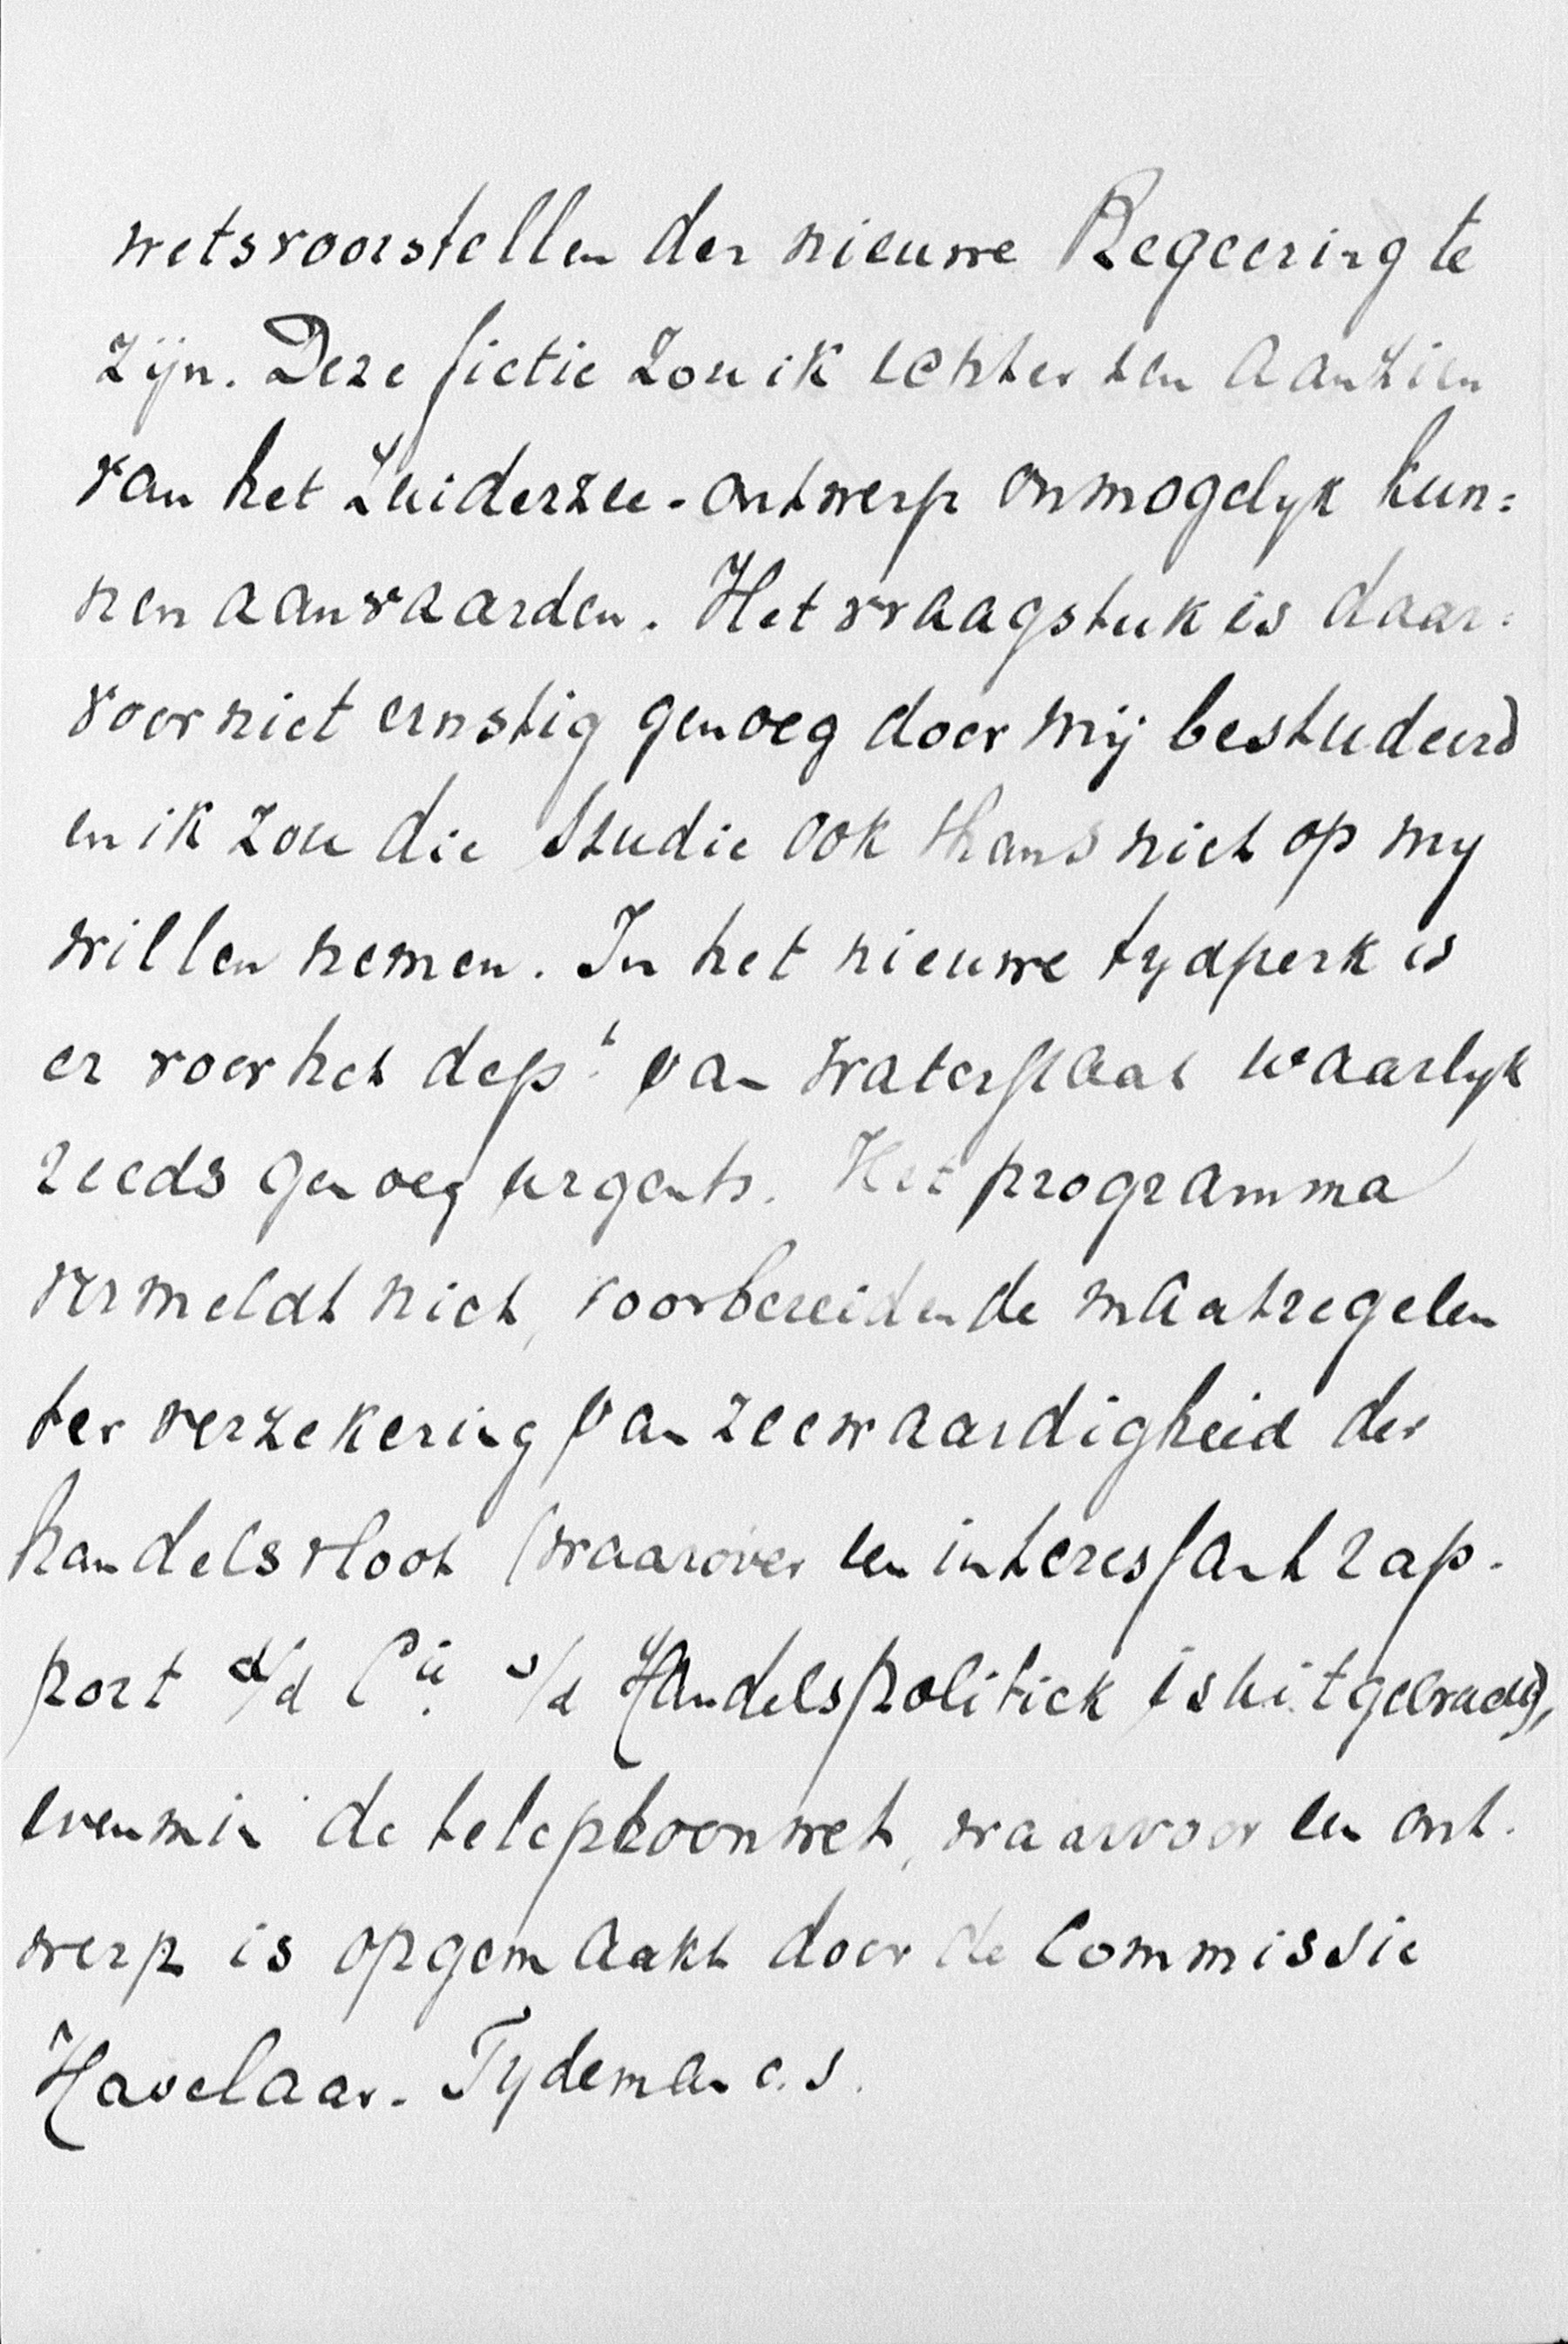 wetsvoorstellen der nieuwe Regeering te
zijn. Deze fictie zou ik echter ten aanzien
van het Zuiderzee-ontwerp onmogelyk kun=
nen aanvaarden. Het vraagstuk is daar=
voor niet ernstig genoeg door mij bestudeerd
en ik zou die studie ook thans niet op my
willen nemen. In het nieuwe tydperk is
er voor het dept. van Waterstaat waarlyk
reeds genoeg urgents. Het programma
vermeldt niet, voorbereidende maatregelen
ter verzekering van zeewaardigheid der
handelsvloot (waarover een interessant rap-
port d/d Cie. v/d Handelspolitiek is uitgebracht),
evenmin de telephoonwet, waarvoor een ont-
werp is opgemaakt door de Commissie
Havelaar-Tydeman c.s.